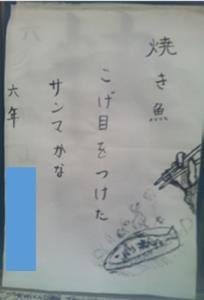 焼き魚
こげ目をつけた
サンマかな
六年